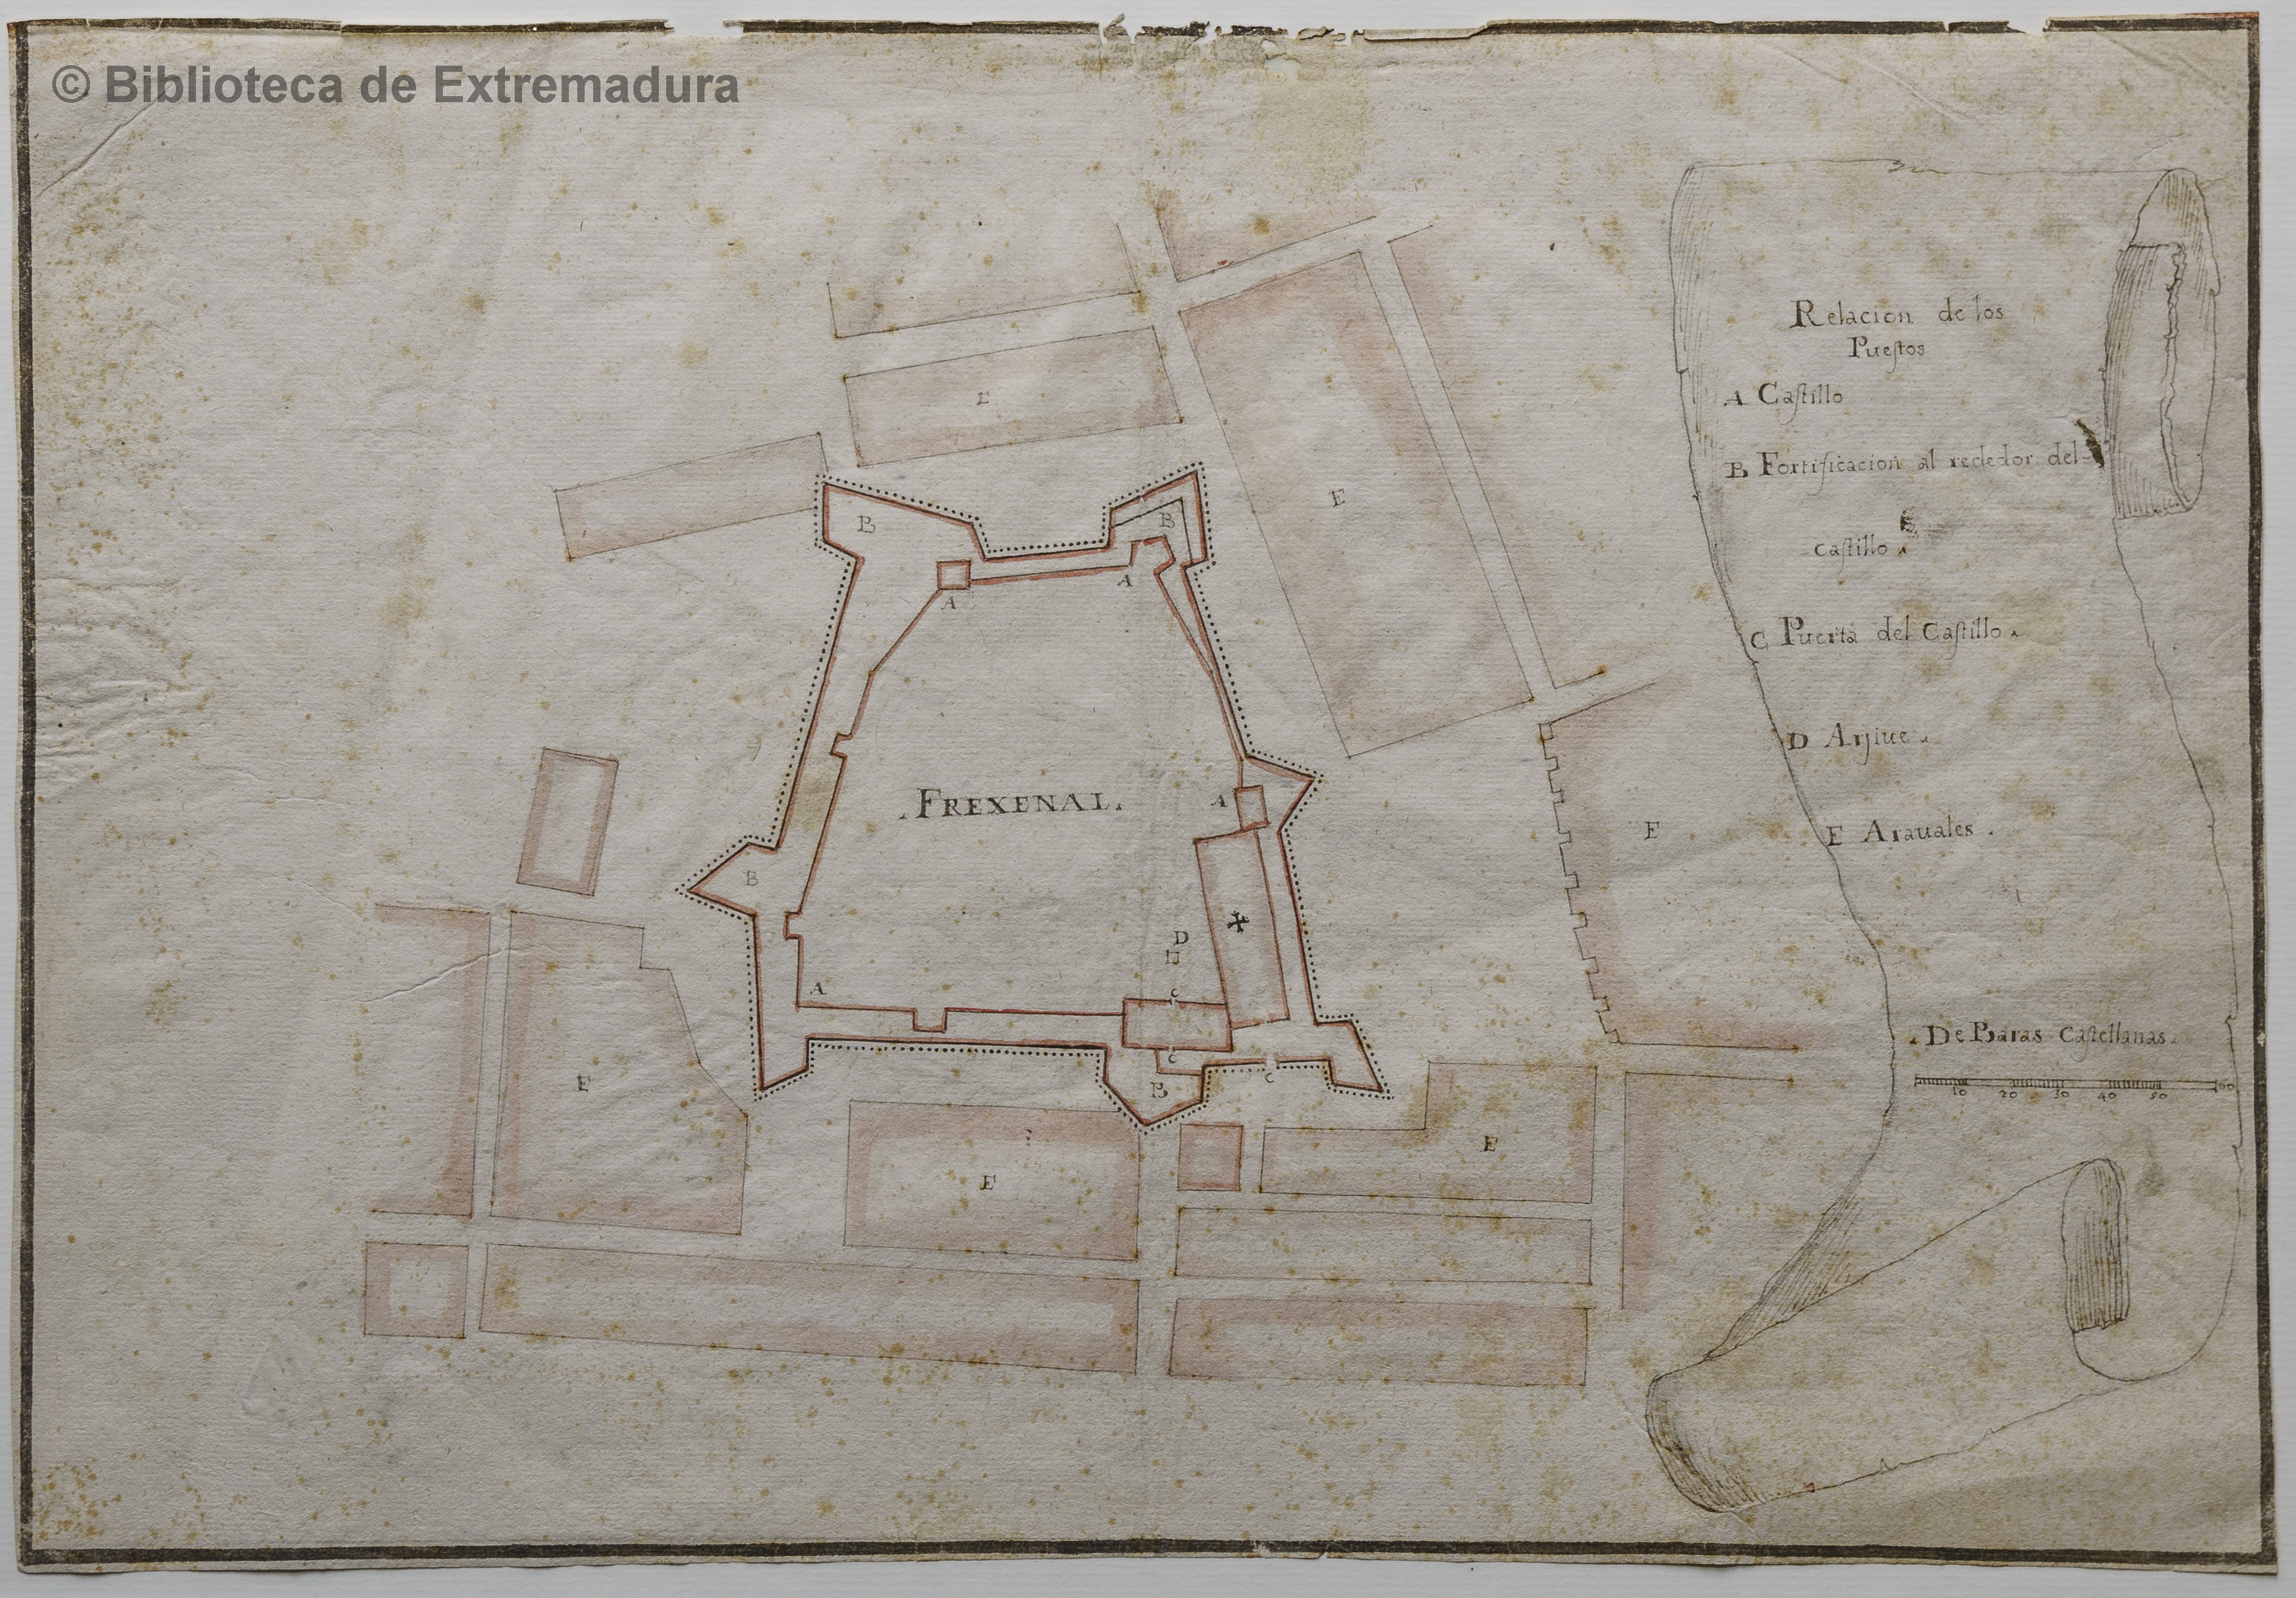 © Biblioteca de Extremadura
Relacion de los
Pueſtos
A Caſtillo
B Fortificacion al rededor del
caſtillo
C Puerta del Caſtillo
D Arjiue
E Arauales
De Baras Caſtellanas
10 20 30 40 50 60
E
E
B
B
A
A
.FREXENAL.
A
E
B
D
C
A
C
C
B
E
E
E